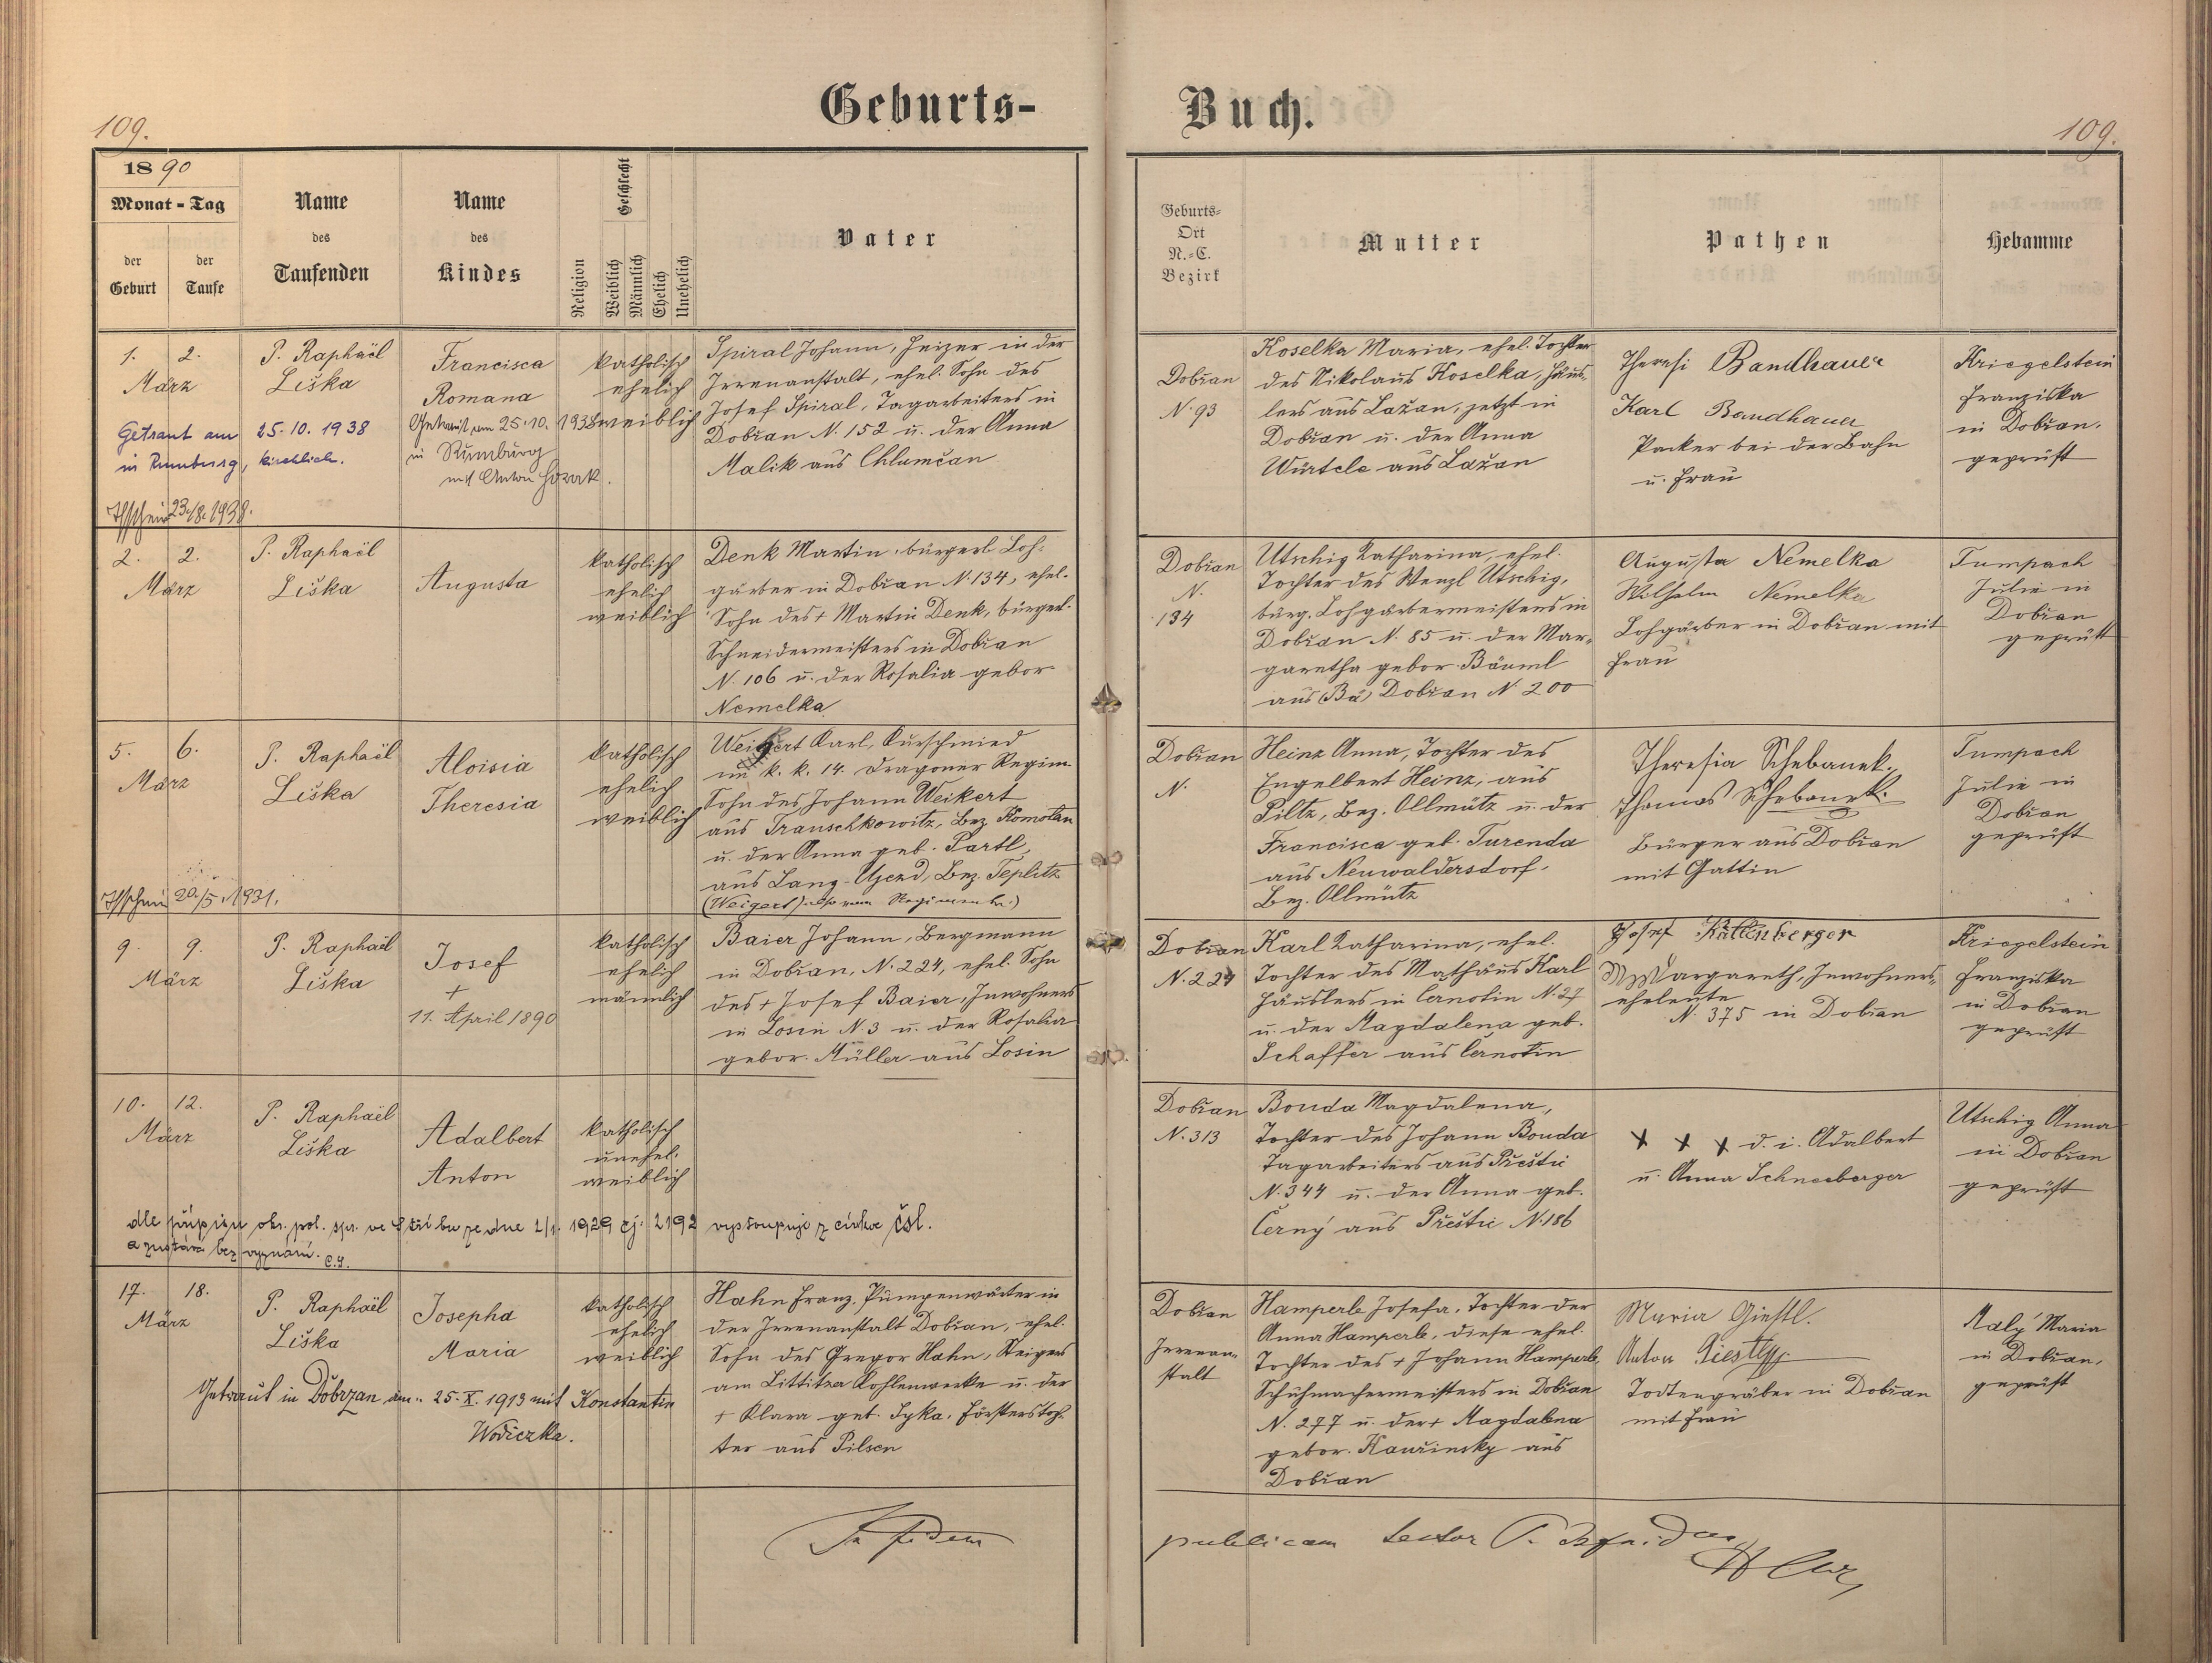 Geburts-
Buch.
109.
109.
1890
Monat - Tag
der Geburt
der Taufe
Name des Taufenden
Name des Kindes
Religion
Geschlecht
Weiblich
Männlich
Ehelich
Unehelich
Vater
Geburts-
Ort
N.-C.
Bezirk
Mutter
Pathen
Hebamme
1. 2.
März
P. Raphaël
Liška
Francisca
Romana
katholisch
ehelich
weiblich
Getraut am 25.10.1938
in Rumburg
mit Anton Horak.
Getraut am 25.10.1938
in Rumburg, kirchlich.
23./8.1938.
Spiral Johann, Heizer in der
Irrenanstalt, ehel. Sohn des
Josef Spiral, Tagarbeiters in
Dobřan N. 152 u. der Anna
Malik aus Chlumčan
Dobřan
N. 93
Koselka Maria, ehel. Tochter
des Nikolaus Koselka, Häus-
lers aus Lažan, jetzt in
Dobřan u. der Anna
Würtele aus Lažan
Theresi Bandhauer
Karl Bandhauer
Packer bei der Bahn
u. Frau
Kriegelstein
Franziska
in Dobřan.
geprüft
2. 2.
März
P. Raphaël
Liška
Augusta
katholisch
ehelich
weiblich
Denk Martin, bürgerl. Loh-
gärber in Dobřan N. 134, ehel.
Sohn des + Martin Denk, bürgerl.
Schneidermeisters in Dobřan
N. 106 u. der Rosalia gebor.
Nemelka
Dobřan
N.
134
Utschig Katharina, ehel.
Tochter des Wenzl Utschig,
bürg. Lohgärbermeisters in
Dobřan N. 85 u. der Mar-
garetha gebor. Bäuml
aus (Bä) Dobřan N. 200
Augusta Nemelka
Wilhelm Nemelka
Lohgärber in Dobřan mit
Frau
Tumpach
Julie in
Dobřan
geprüft
5. 6.
März
P. Raphaël
Liška
Aloisia
Theresia
katholisch
ehelich
weiblich
20./5.1931.
Weigert Karl, Kurschmied
im k. k. 14. Dragoner Regim.
Sohn des Johann Weikert
aus Trauschkowitz, Bez. Komotau
u. der Anna geb. Partl,
aus Lang-Ujezd, Bez. Teplitz
(Weigert)
Dobřan
N.
Heinz Anna, Tochter des
Engelbert Heinz, aus
Piltz, Bez. Ollmütz u. der
Francisca geb. Turenda
aus Neuwaldersdorf,
Bez. Ollmütz
Theresia Schebanek.
Thomas Schebanek.
Bürger aus Dobřan
mit Gattin
Tumpach
Julie in
Dobřan
geprüft
9. 9.
März
P. Raphaël
Liška
Josef
+
11. April 1890
katholisch
ehelich
männlich
Baier Johann, Bergmann
in Dobřan, N. 224, ehel. Sohn
des + Josef Baier, Inwohners
in Losin N. 3 u. der Rosalia
gebor. Müller aus Losin
Dobřan
N. 224
Karl Katharina, ehel.
Tochter des Mathäus Karl
Häuslers in Černotin N. 27
u. der Magdalena geb.
Schaffer aus Černotin
Josef Kaltenberger
Margareth, Inwohners-
eheleute
N. 375 in Dobřan
Kriegelstein
Franziska
in Dobřan
geprüft
10. 12.
März
P. Raphaël
Liška
Adalbert
Anton
katholisch
unehel.
weiblich
dle přípisu okr. pol. spr. ve Stříbře ze dne 2/1. 1929 čj. 2192 vystoupil z církve čsl.
a zůstává bez vyznání.
Dobřan
N. 313
Bouda Magdalena,
Tochter des Johann Bouda
Tagarbeiters aus Přeštic
N. 344 u. der Anna geb.
Černý aus Přeštic N. 186
x x x d. i. Adalbert
u. Anna Schneeberger
Utschig Anna
in Dobřan
geprüft
17. 18.
März
P. Raphaël
Liška
Josepha
Maria
katholisch
ehelich
weiblich
Getraut in Dobrzan am 25. X. 1913 mit Konstantin
Wodiczka.
Hahn Franz, Pumpenwärter in
der Irrenanstalt Dobřan, ehel.
Sohn des Gregor Hahn, Steigers
am Littitzer Kohlenwerke u. der
+ Klara geb. Syka, Försterstoch-
ter aus Pilsen
Dobřan
Irrenan-
stalt
Hamperle Josefa, Tochter der
Anna Hamperle, diese ehel.
Tochter des + Johann Hamperle,
Schuhmachermeisters in Dobřan
N. 277 u. der + Magdalena
gebor. Kauřinsky aus
Dobřan
Maria Giestl.
Anton Giestl
Todtengräber in Dobřan
mit Frau
Malý Maria
in Dobřan,
geprüft
In fidem
publicam